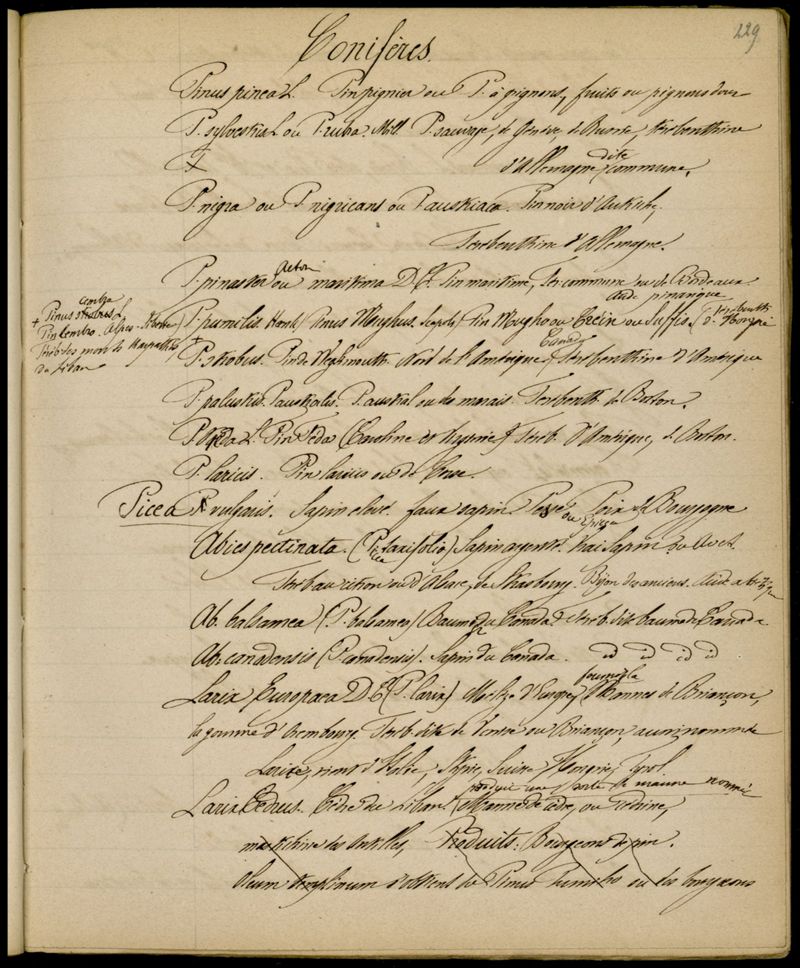 229
Conifères.
Pinus pinea L. Pin pignier ou P. à pignons, fruits ou pignons doux
P. sylvestris L ou P. rubra Mill. P. sauvage, de Genève de Russie, térébenthine
d'Allemagne dite commune.
P. nigra ou P. nigricans ou P. austriaca. Pin noir d'Autriche.
Térébenthine d'Allemagne.
P. pinaster Aeton ou maritima D.C. Pin maritime, Ter commune ou de Bordeaux
acide pimarique
+ Pinus cembra L
Pin Cembro. Alpes -
Téréb des monts Karpathes
du Liban
P. pumilis Henk Pinus Mughus Scopoli Pin Mugho ou Crein ou Suffis. Térébenth d. Hongrie
+ P. strobus. Pin de Weymouth. Nord de l'Amérique Canada Térébenthine d'Amérique
P. palustris. P. australis. P. austral ou des marais. Térébenth. de Boston.
P. taeda L. Pin Téda (Caroline et Virginie) Téréb. d'Amérique, de Boston.
P. laricis. Pin laricio ou de Corse.
Picea P vulgaris. Sapin élevé. faux sapin Pesse ou Epicea Poix de Bourgogne
Abies pectinata. (Picea taxifolia) Sapin argenté. Vrai Sapin ou Avet.
Téréb au citron ou d'Alsace, de Strasbourg. Bijon des anciens. Acide abiétique
Ab. balsamea (P. balsamea) Baumier du Canada Téréb. dite baume de Canada
Ab. canadensis (P. canadensis). Sapin du Canada. id id id id
Larix Europaea D.C (P. larix) Mélèze d'Europe, fournit la Mannes de Briançon,
la gomme d'Orembourg. Téréb. dite de Venise ou Briançon, aussi nommée
Larixe, vient d'Italie, Styrie, Suisse Hongrie, Tyrol
Larix Cedrus. Cèdre du Liban. produit une sorte de manne nommée (Manne de cèdre, ou cédrine,
mastichine des Antilles, Produits: Bourgeons de pin.
Oleum templinum s'obtient du Pinus Pumilio ou des bourgeons